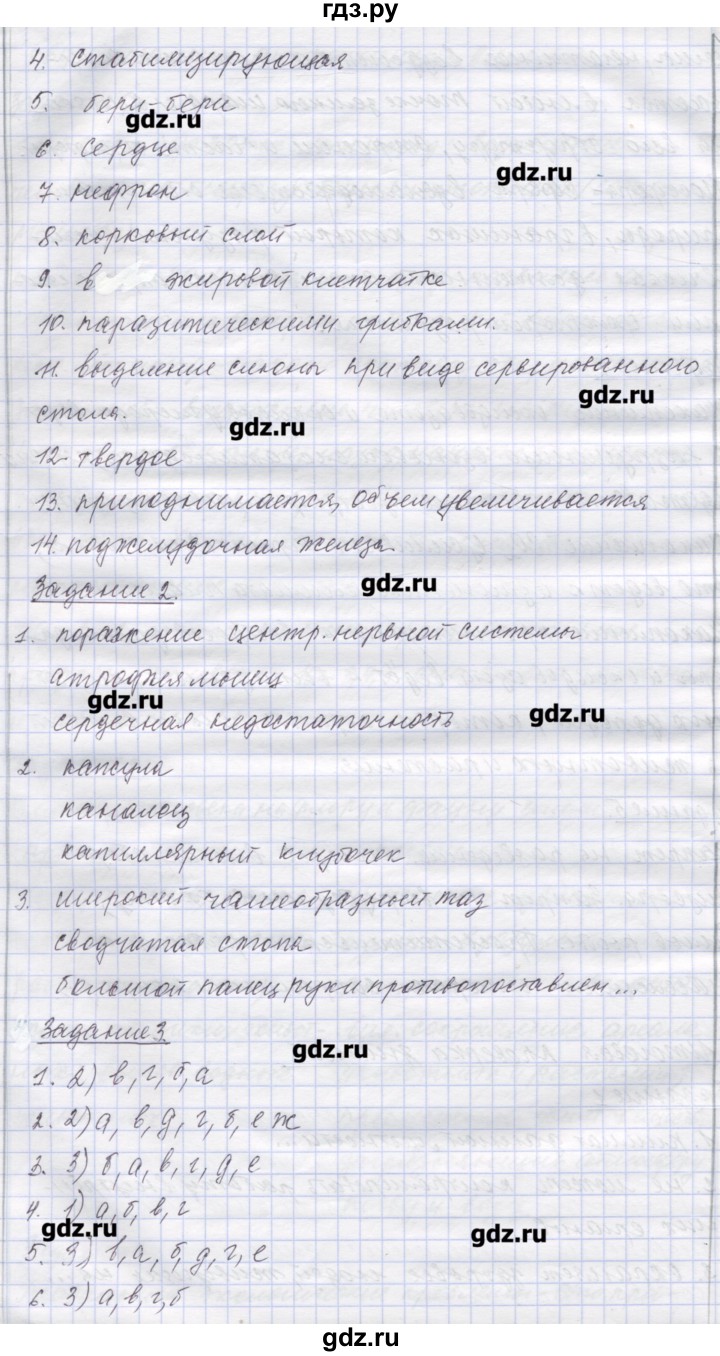 гдз.ру
4. стабилизирующая
5. бери-бери
gdz.ru
6. Сердце
gdz.ru
7. нефрон
8. корковый слой
9. в жировой клетчатке
10. паразитическими грибками.
11. выделение слюны при виде сервированного
gdz.ru
стола.
gdz.ru
12 твердое
13. приподнимается, объем увеличивается
14. поджелудочная железа
Задание 2.
gdz.ru
1. поражение центр. нервной системы
атрофия мышц
gdz.ru
gdz.ru
сердечная недостаточность
2. капсула
каналец
капиллярный клубочек
3. широкий чашеобразный таз
сводчатая стопа
большой палец руки противопоставлен...
Задание 3.
gdz.ru
1. 2) в, г, б, а
2. 2) а, в, д, г, б, е ж
3. 3) б, а, в, г, д, е
4. 1) а, б, в, г
gdz.ru
gdz.ru
5. 3) в, а, б, д, г, е
6. 3) а, в, г, б
gdz.ru